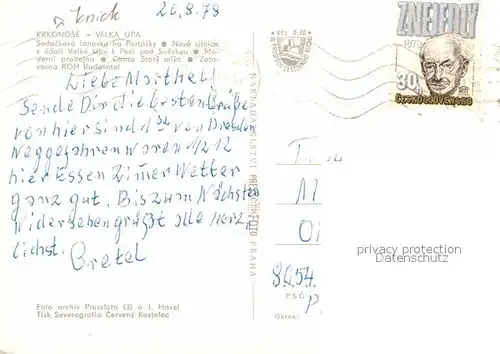 knick 20.8.78
KRKONOŠE – VELKÁ ÚPA
Sedačková lanovka na Portášky ● Nová silnice
v údolí Velké Úpy k Peci pod Sněžkou ● Mo-
derní prodejna ● Chata Starý mlýn ● Zota-
vovna ROH Budovatel
Liebe Marthel!
Sende Dir die liebsten Grüße
von hier sind von Dresden
weggefahren waren 1212
hier Essen Zimer Wetter
ganz gut. Bis zum Nächsten
Widersehen grüßt alle herz
lichst.
Gretel
Foto archiv Pressfoto (3) a J. Havel
Tisk Severografia Červený Kostelec
NAKLADATELSTVÍ PRESSFOTO PRAHA
Kčs 0,70
ZNEJEDLÝ
1878
30h
ČESKOSLOVENSKO
8054
PSČ
Okres:
privacy protection
Datenschutz